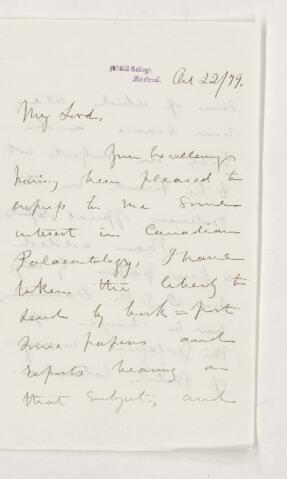 McGill College,
Montreal.
Oct 22/79.
My Lord,
Your Excellency
having been pleased to
express to me some
interest in Canadian
Palaeontology, I have
taken the liberty to
send by book-post
some papers and
reports bearing on
that subject, and